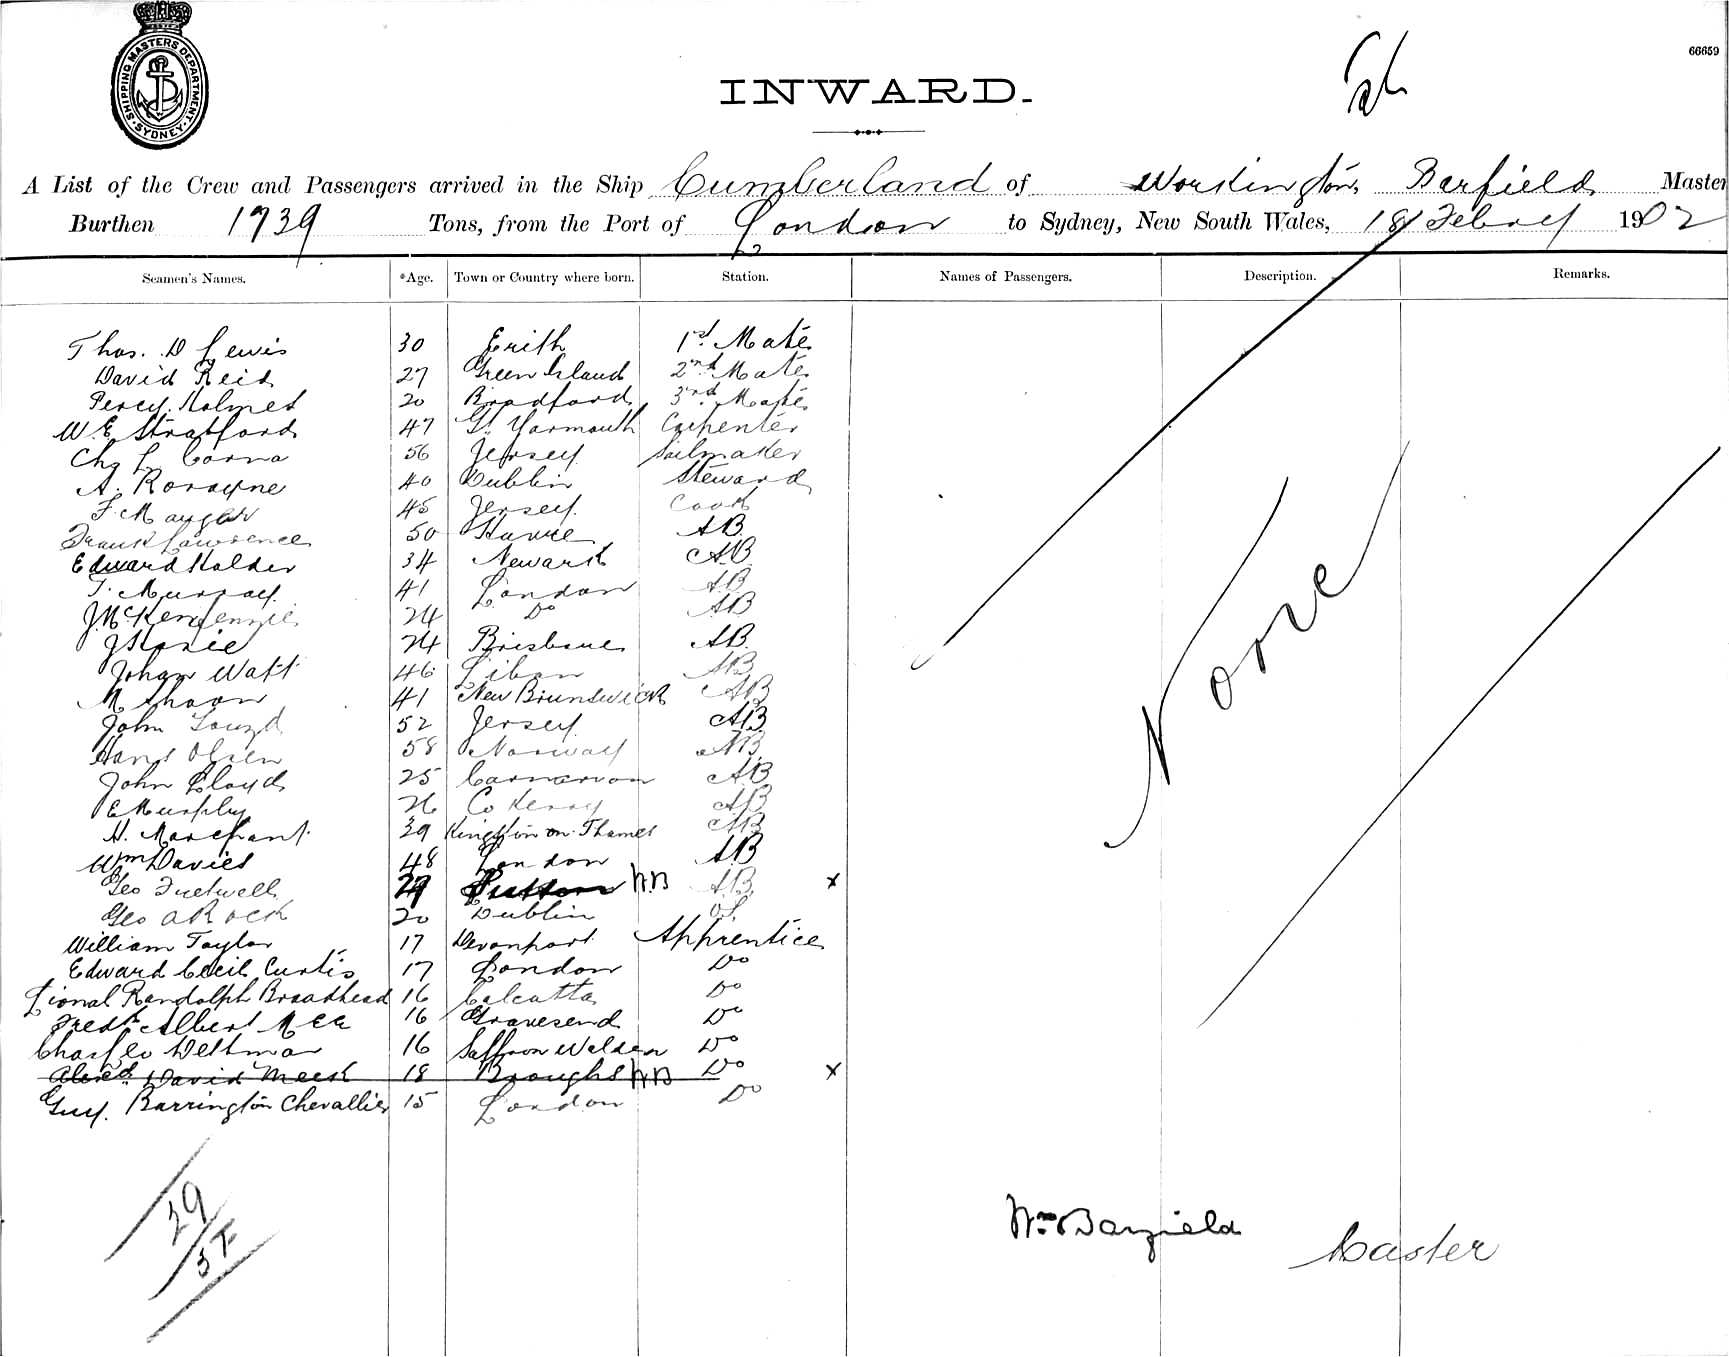 SHIPPING MASTERS DEPARTMENT. SYDNEY
66659
INWARD.
A List of the Crew and Passengers arrived in the Ship Cumberland of Workington, Barfield Master
Burthen 1739 Tons, from the Port of London to Sydney, New South Wales, 18 Febry 1902
Seamen's Names. *Age. Town or Country where born. Station. Names of Passengers. Description. Remarks.
Thos. D Lewis 30 Erith 1st. Mate
David Reid 27 Green Island 2nd Mate
Percy Holmes 20 Bradford 3rd Mate
W.E. Stratford 47 Gt. Yarmouth Carpenter
Chs L 56 Jersey Sailmaker
A. 40 Dublin Steward
F. Mauger 45 Jersey Cook
Frank Lawrence 50 Havre AB
Edward Holder 34 Newark AB
T. Murray 41 London AB
J. McKenzie 24 Do AB
24 Brisbane AB
Johan Watt 46 Libau AB
41 New Brunswick AB
John 52 Jersey AB
Hans Olsen 58 Norway AB
John Lloyd 25 Carnarvon AB
E Murphy 26 Co Kerry AB
H. Marchant 39 Kingston on Thames AB
Wm Davies 48 London AB
Geo 29 Sutton AB x
Geo A Rock 20 Dublin OS
William Taylor 17 Devonport Apprentice
Edward Cecil Curtis 17 London Do
Lional Randolph Broadhead 16 Calcutta Do
Fredk Albert 16 Gravesend Do
Chas Leo Weltman 16 Saffron Walden Do
Alexd. David Meek 18 Broughs Do x
Guy. Barrington Chevallier 15 London Do
None
29
Wm Barfield
Master